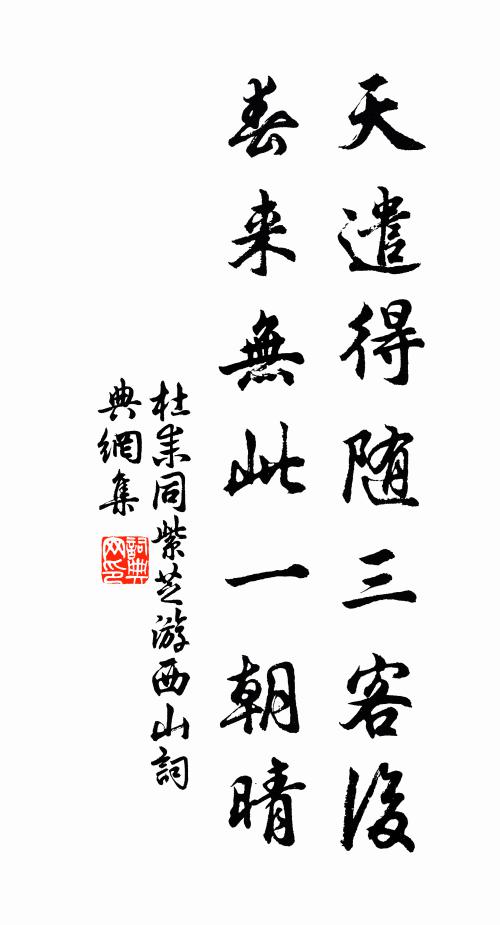 天遣得随三客後
春来無此一朝晴
杜耒同紫芝游西山詞
典網集
詞典网印